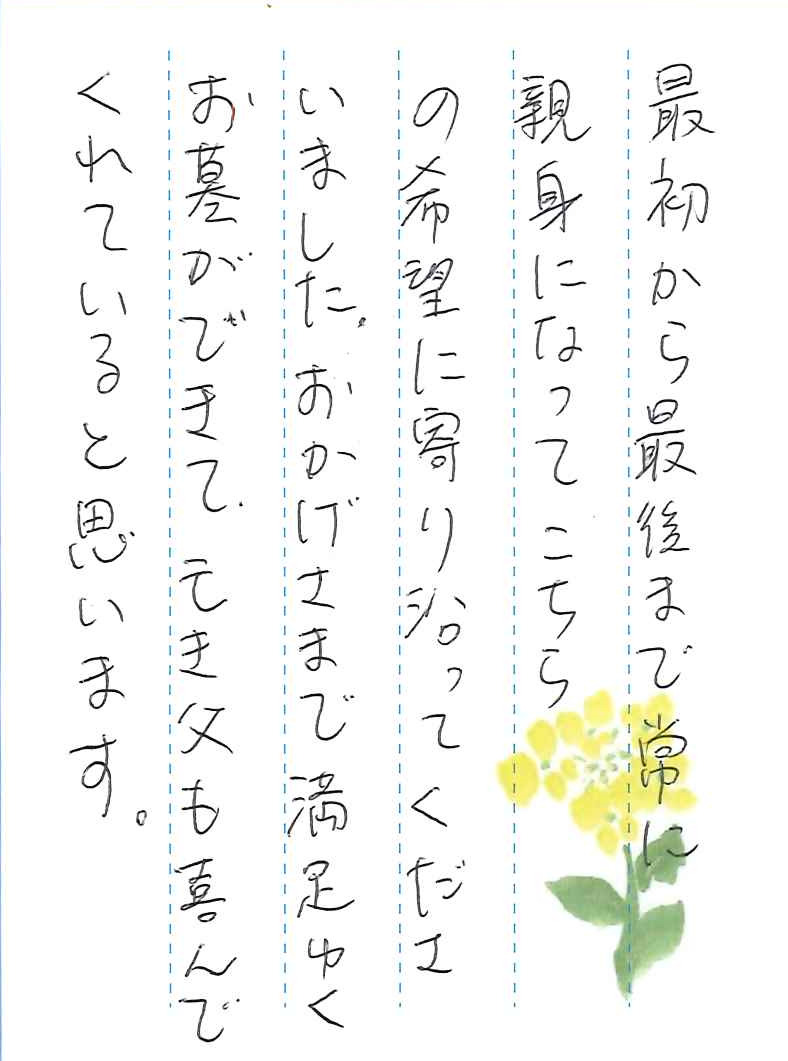 最初から最後まで常に
親身になってこちら
の希望に寄り沿ってくださ
いました。おかげさまで満足ゆく
お墓ができて、亡き父も喜んで
くれていると思います。